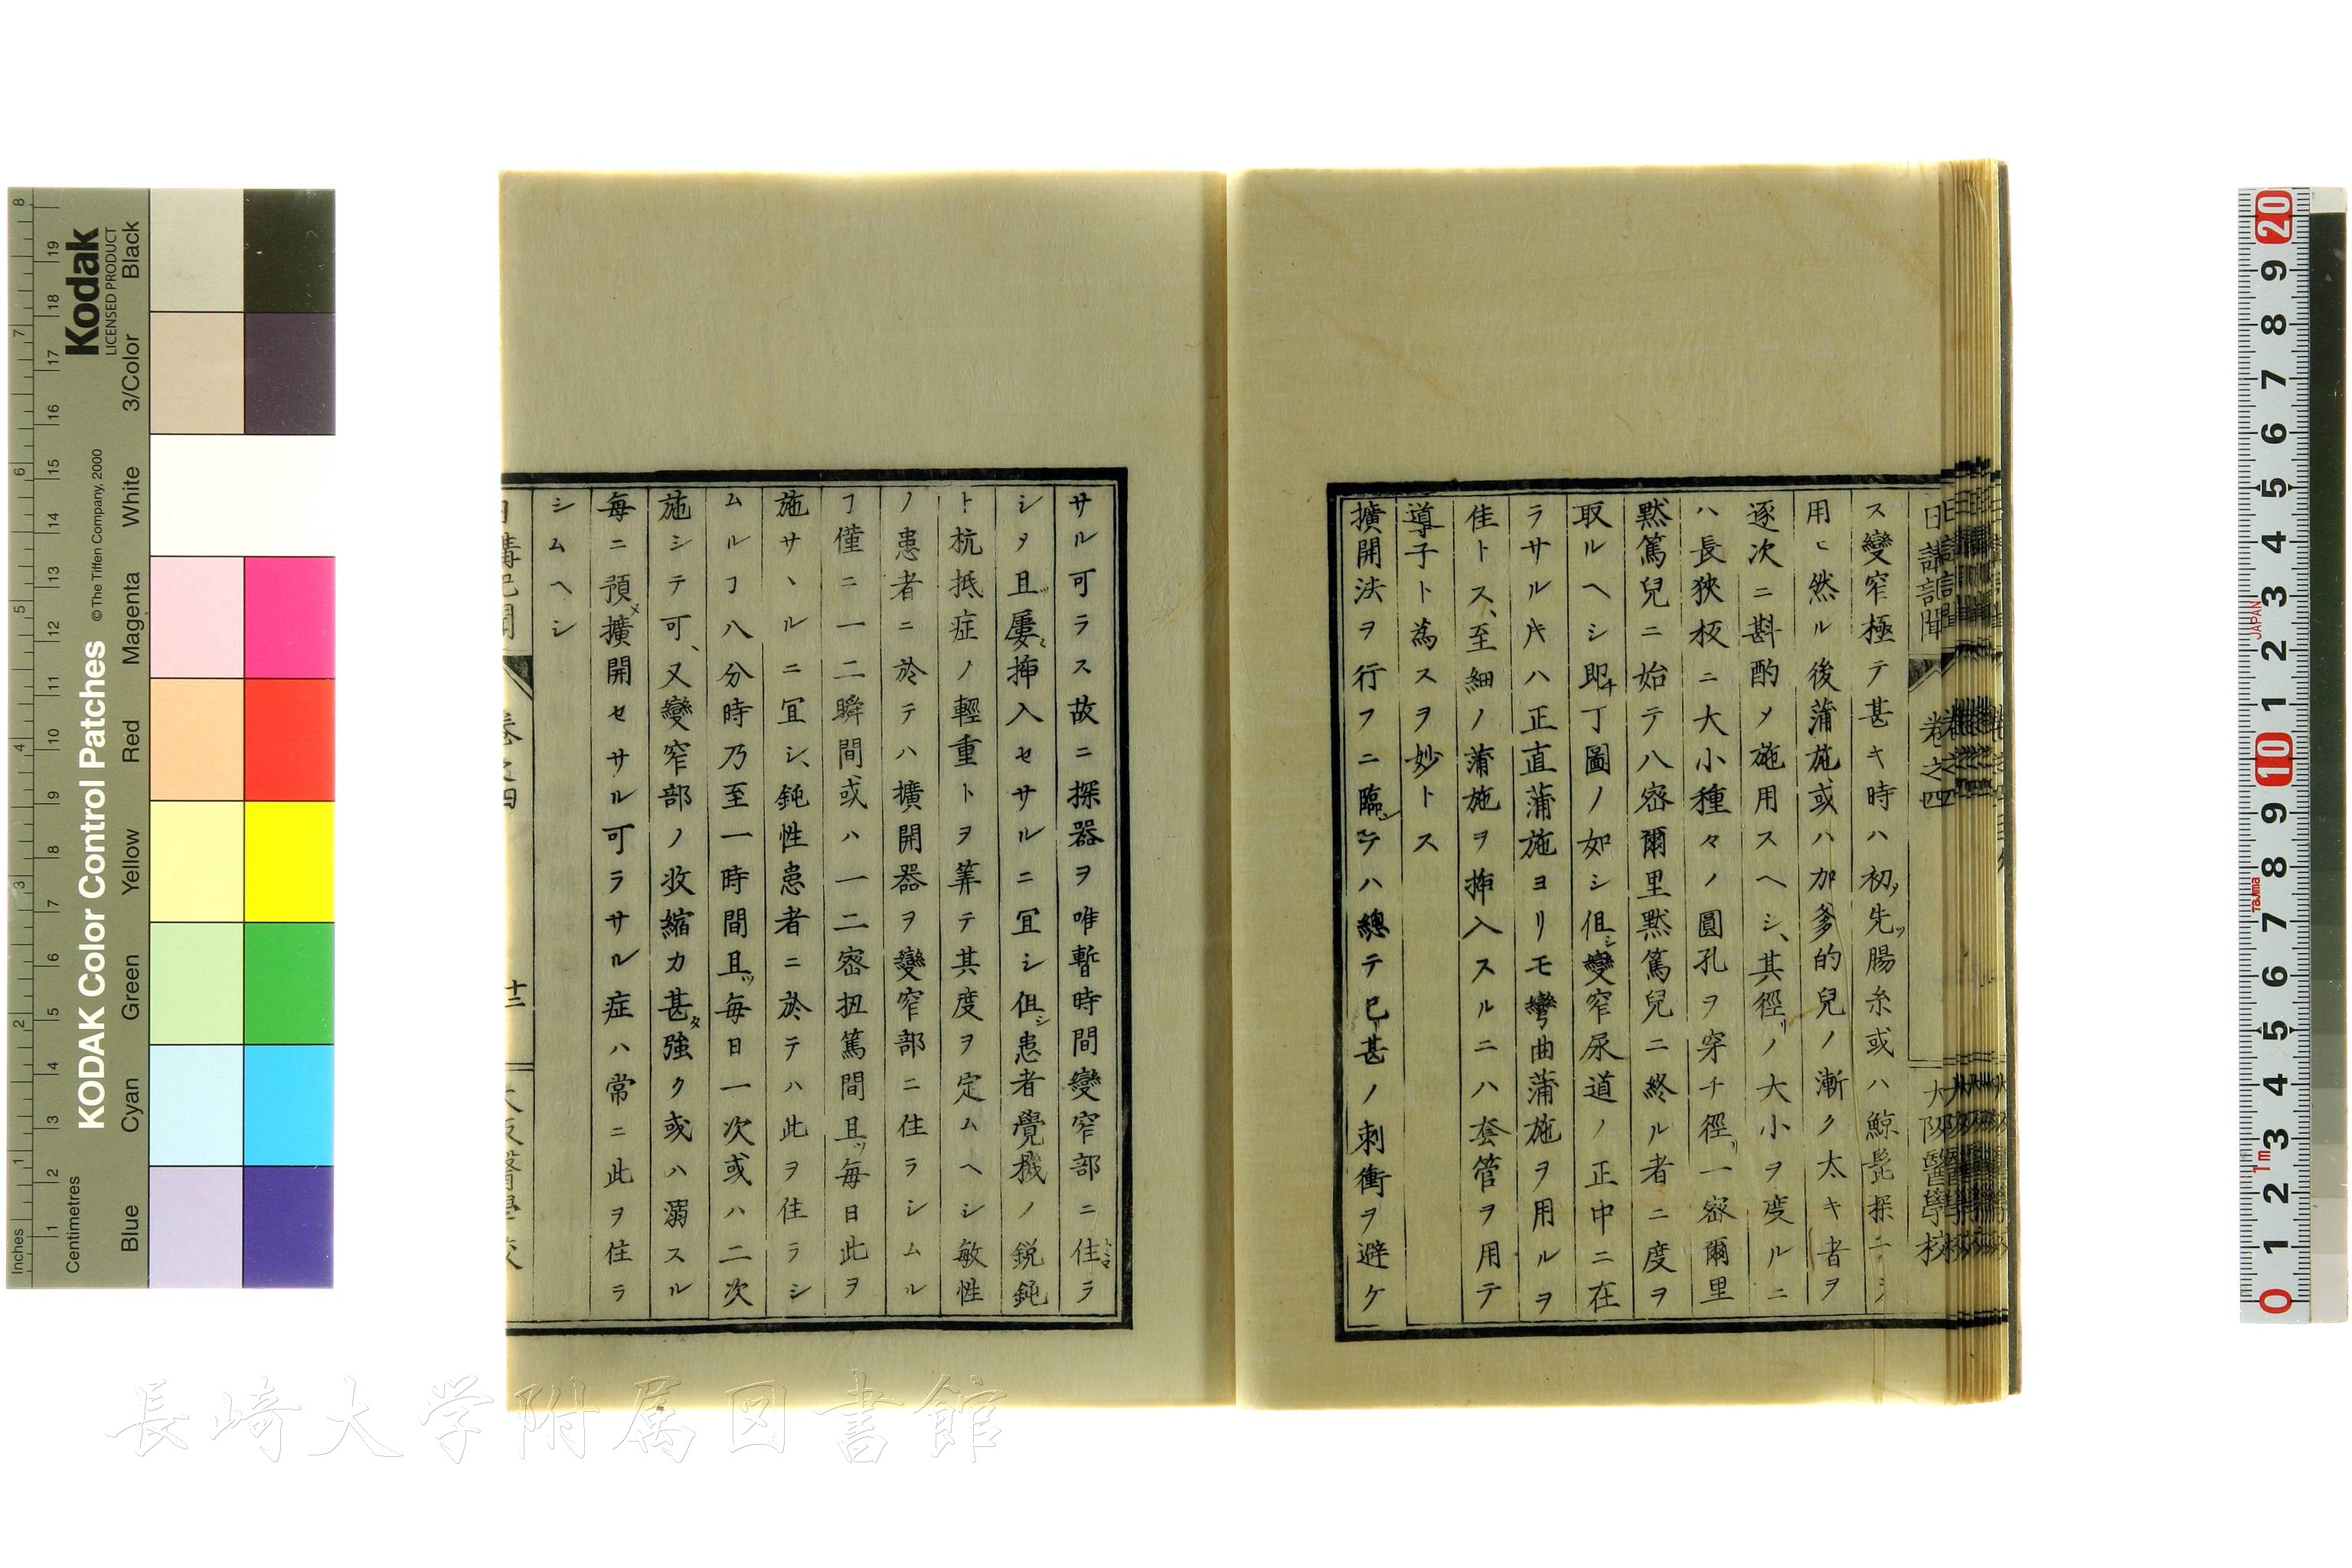 日講記聞 卷之四 大阪醫學校
ス變窄極テ甚キ時ハ初メ先ツ腸糸或ハ鯨髭探ニシ
用ヒ然ル後蒲施或ハ加爹的兒ノ漸ク太キ者ヲ
逐次ニ斟酌メ施用スヘシ、其徑リノ大小ヲ度ルニ
ハ長狹板ニ大小種々ノ圓孔ヲ穿チ徑リ一密爾里
黙篤兒ニ始テ八密爾里黙篤兒ニ終ル者ニ度ヲ
取ルヘシ即チ丁圖ノ如シ但シ變窄尿道ノ正中ニ在
ラサルキハ正直蒲施ヨリモ彎曲蒲施ヲ用ルヲ
佳トス、至細ノ蒲施ヲ挿入スルニハ套管ヲ用テ
導子ト爲スヲ妙トス
擴開法ヲ行フニ臨ンテハ總テ已甚ノ刺衝ヲ避ケ
サル可ラス故ニ探器ヲ唯暫時間變窄部ニ住ラ
シメ且ツ屢ミ挿入セサルニ宜シ但シ患者覺機ノ鋭鈍
ト抗抵症ノ輕重トヲ筭テ其度ヲ定ムヘシ敏性
ノ患者ニ於テハ擴開器ヲ變窄部ニ住ラシムル
ヿ僅ニ一二瞬間或ハ一二密扭篤間且ツ毎日此ヲ
施サヽルニ宜シ、鈍性患者ニ於テハ此ヲ住ラシ
ムルヿ八分時乃至一時間且ツ毎日一次或ハ二次
施シテ可、又變窄部ノ收縮力甚タ強ク或ハ溺スル
毎ニ預メ擴開セサル可ラサル症ハ常ニ此ヲ住ラ
シムヘシ
日講記聞 卷之四 十二 大阪醫學校
KODAK Color Control Patches
Kodak
LICENSED PRODUCT
©The Tiffen Company, 2000
Inches
Centimetres
Blue Cyan Green Yellow Red Magenta White 3/Color Black
長崎大学附属図書館
JAPAN
Tajima